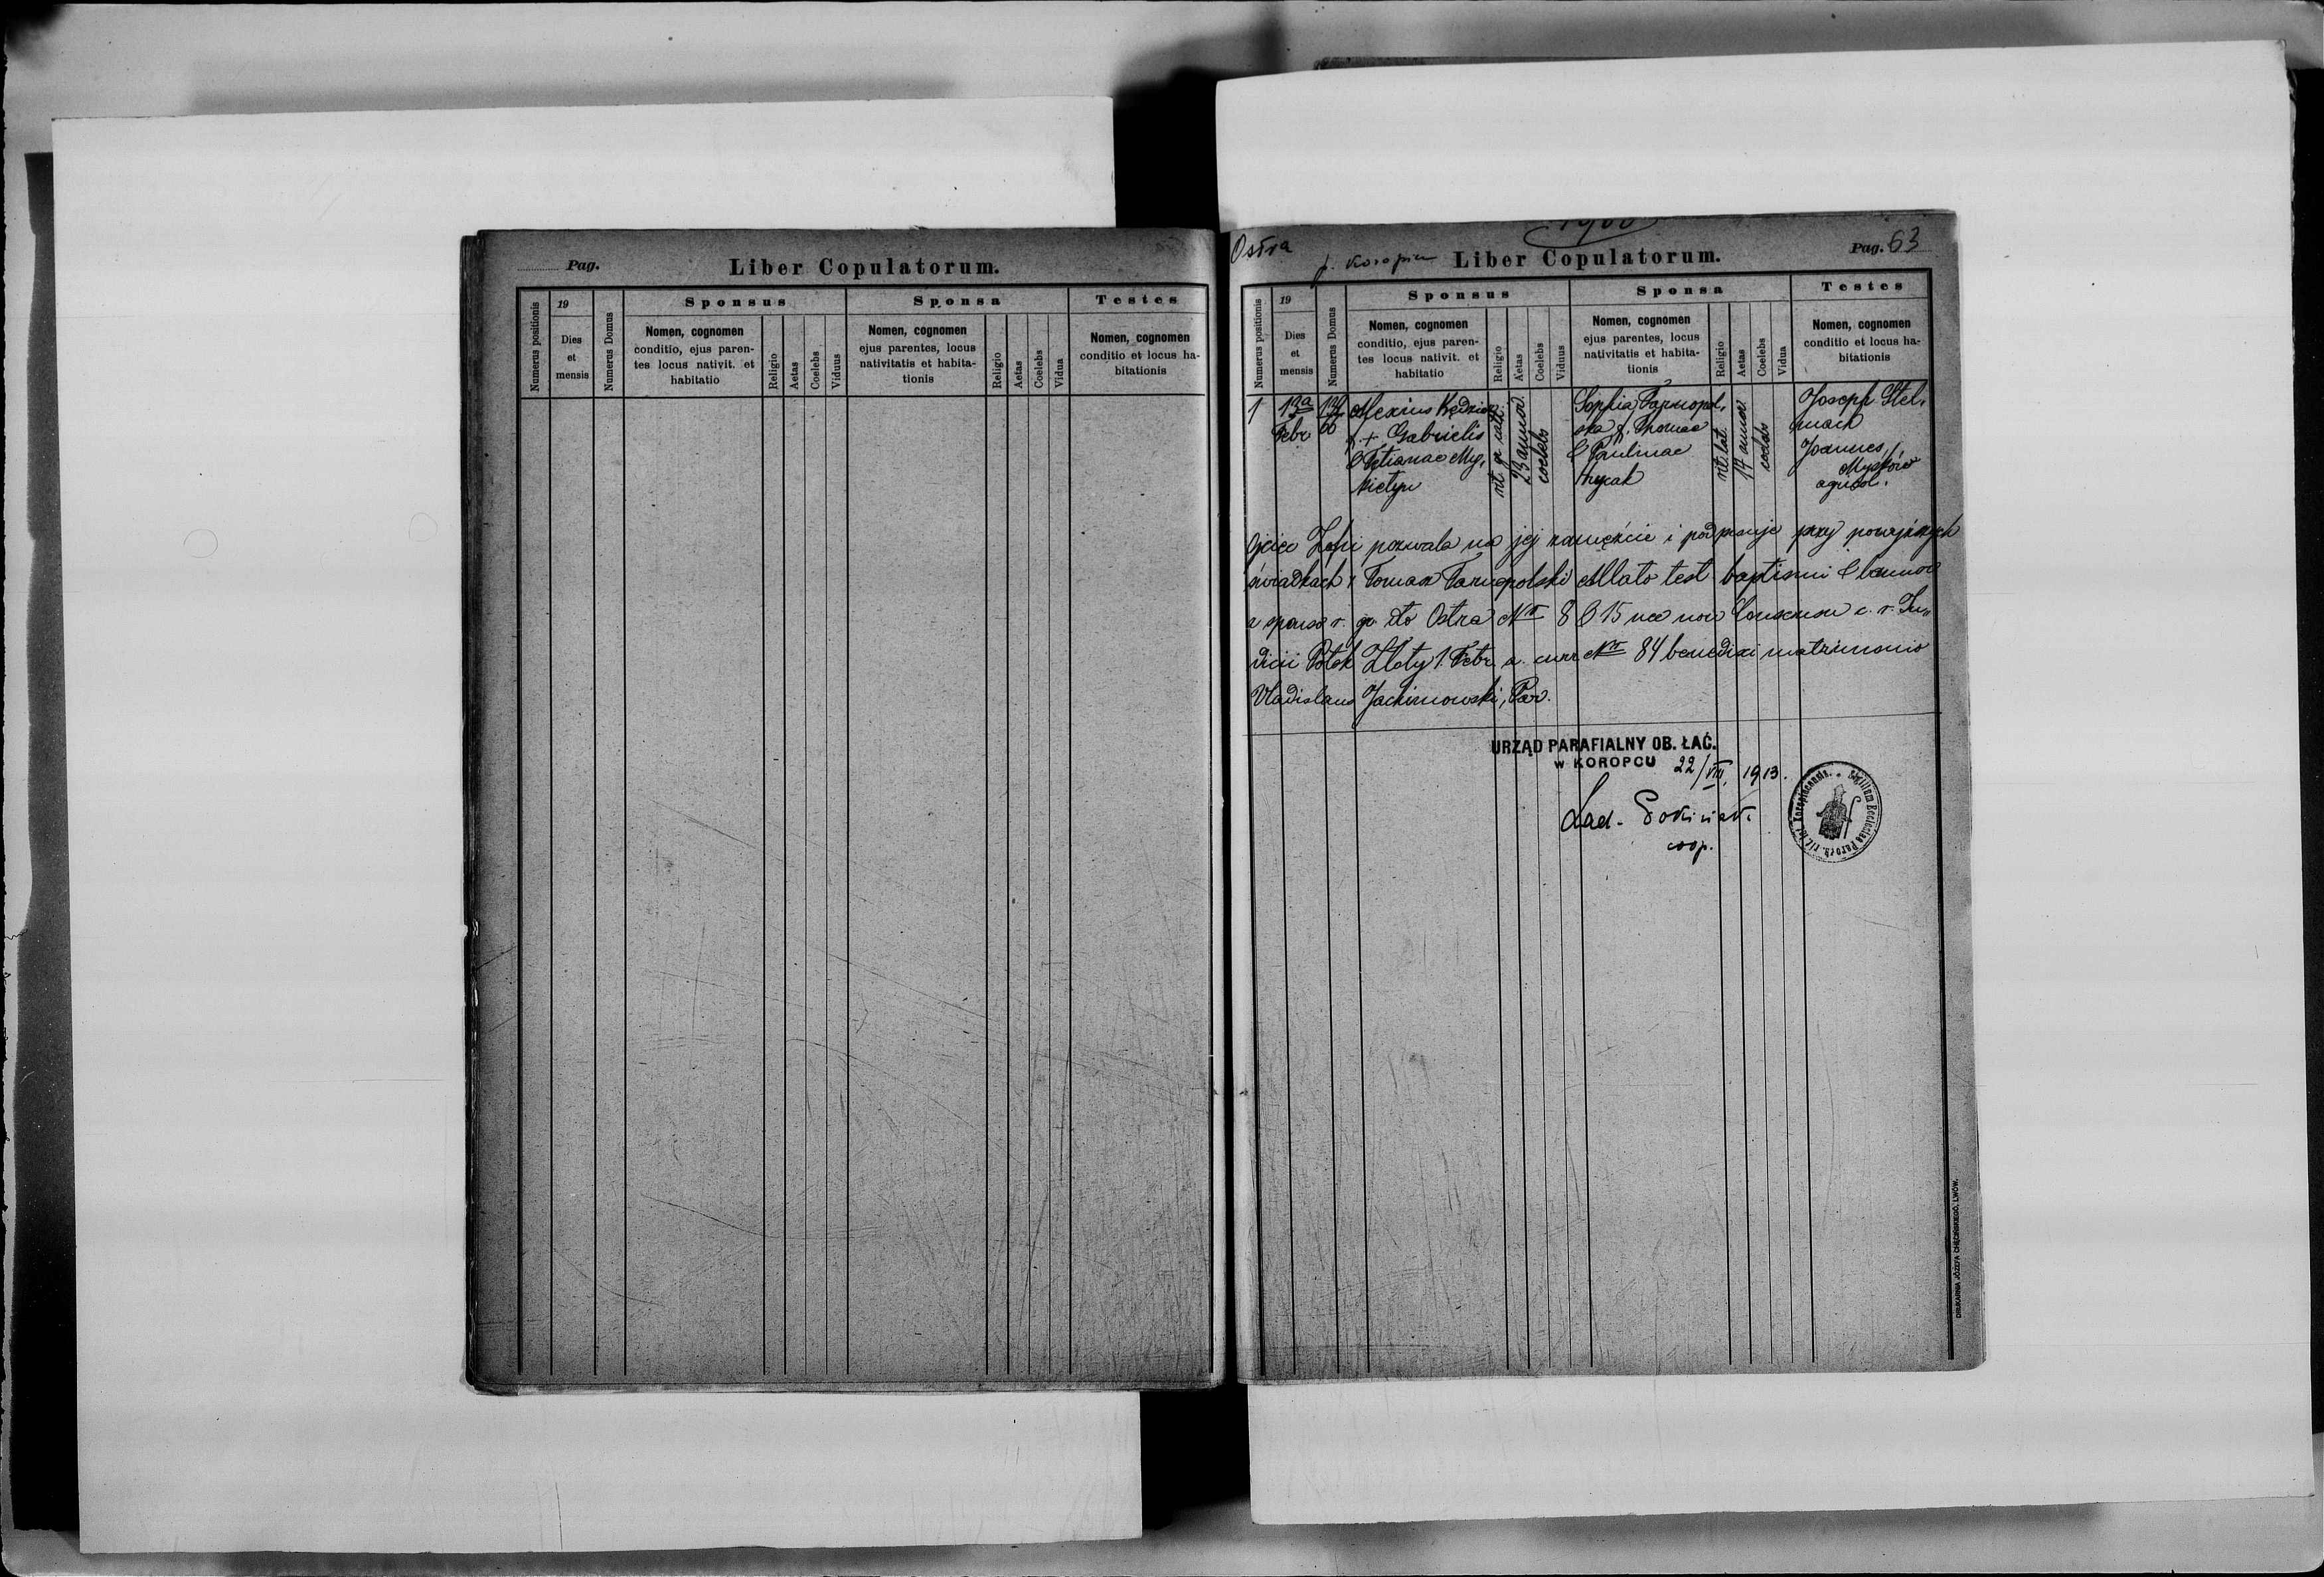 Pag.
Liber Copulatorum.
Numerus positionis
19
Dies
et
mensis
Numerus Domus
Sponsus
Nomen, cognomen
conditio, ejus paren-
tes locus nativit. et
habitatio
Religio
Aetas
Coelebs
Viduus
Sponsa
Nomen, cognomen
ejus parentes, locus
nativitatis et habita-
tionis
Religio
Aetas
Coelebs
Vidua
Testes
Nomen, cognomen
conditio et locus ha-
bitationis
Ostra
p. Koropiec
Liber Copulatorum.
Pag. 63
Numerus positionis
19
Dies
et
mensis
Numerus Domus
Sponsus
Nomen, cognomen
conditio, ejus paren-
tes locus nativit. et
habitatio
Religio
Aetas
Coelebs
Viduus
Sponsa
Nomen, cognomen
ejus parentes, locus
nativitatis et habita-
tionis
Religio
Aetas
Coelebs
Vidua
Testes
Nomen, cognomen
conditio et locus ha-
bitationis
1
13a
Febr
66
Alexius
f. + Gabrielis
& Tetianae My,
kietyn
rit. gr. cath.
23 annor.
coelebs
Sophia Tarnopol,
ska f. Thomae
& Paulinae
Hrycak
rit. lat.
17 annor.
coelebs
Joseph Stel,
mach
Joannes
Myśków
agricol.
Ojciec Zofii pozwala na jej zamęźcie i podpisuje przy powyższych
świadkach: Tomasz Tarnopolski Allato test baptismi & bannor
a sponso r. gr. dto Ostra Nr 8 & 15 nec non Consensu c. r. Ju,,
dicii Potok Złoty 1. Febr. a. curr. Nr 84 benedixi matrimonio
Vladislaus Jachimowski, Par.
URZĄD PARAFIALNY OB. ŁAĆ.
w KOROPCU 22/VIII. 1913.
Lad.
coop.
Sigillum Ecclesiae Paroch. rit. lat. Koropiecensis.
DRUKARNIA JÓZEFA CHĘCIŃSKIEGO, LWÓW.